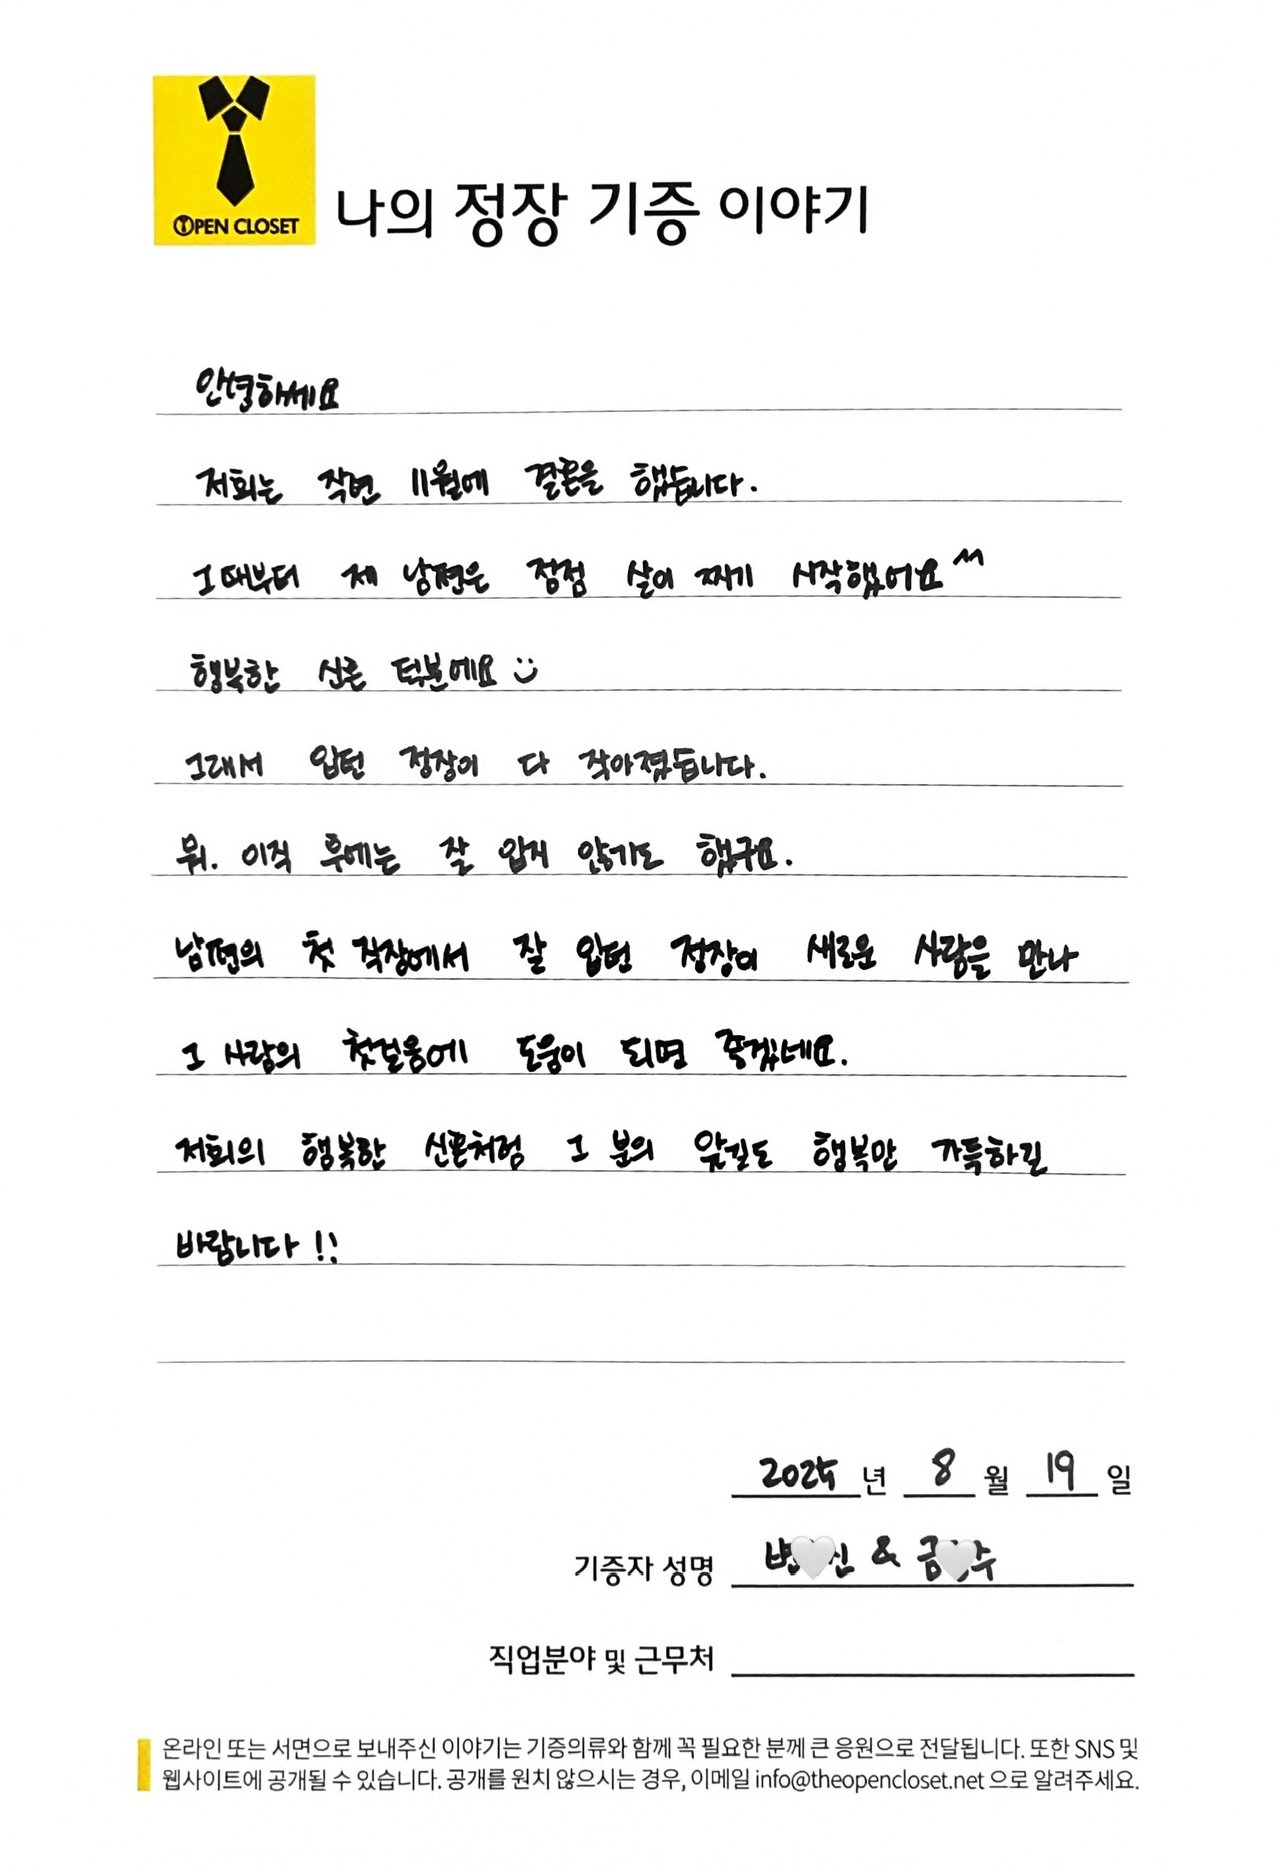 OPEN CLOSET
나의 정장 기증 이야기
안녕하세요
저희는 작년 11월에 결혼을 했습니다.
그때부터 제 남편은 점점 살이 찌기 시작했어요^^
행복한 신혼 덕분에요 :)
그래서 입던 정장이 다 작아졌습니다.
뭐. 이직 후에는 잘 입지 않기도 했구요.
남편의 첫 직장에서 잘 입던 정장이 새로운 사람을 만나
그 사람의 첫걸음에 도움이 되면 좋겠네요.
저희의 행복한 신혼처럼 그 분의 앞길도 행복만 가득하길
바랍니다!!
2025 년 8 월 19 일
기증자 성명 변 신 & 금 수
직업분야 및 근무처
온라인 또는 서면으로 보내주신 이야기는 기증의류와 함께 꼭 필요한 분께 큰 응원으로 전달됩니다. 또한 SNS 및
웹사이트에 공개될 수 있습니다. 공개를 원치 않으시는 경우, 이메일 info@theopencloset.net 으로 알려주세요.